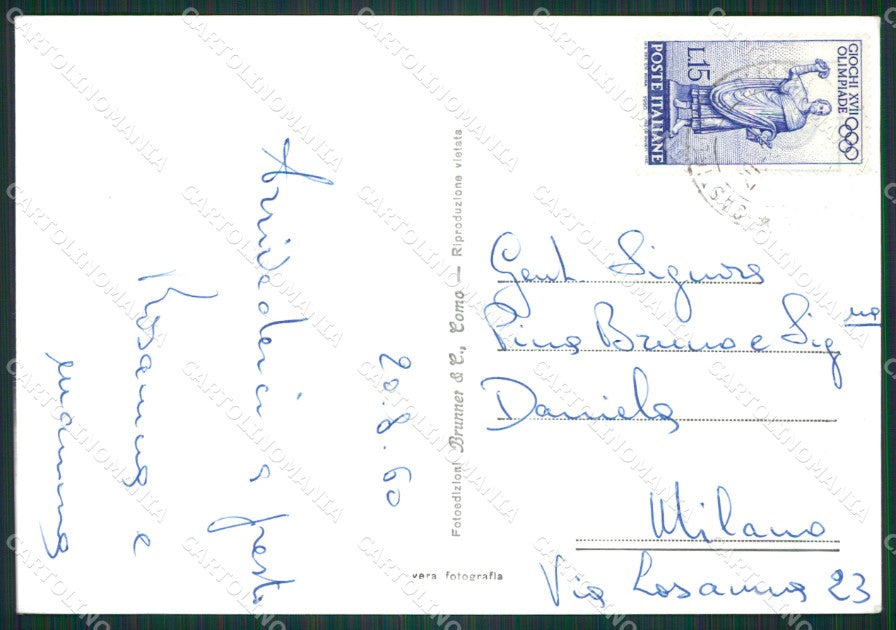 20.8.60
Arrivederci a presto
Rosanna e
mamma
Fotoedizioni Brunner & C., Como — Riproduzione vietata
vera fotografia
GIOCHI XVII
OLIMPIADE
L.15
POSTE ITALIANE
Gent. Signora
Pina Bruno e Sig.na
Daniela
Milano
Via Losanna 23
CARTOLINOMANIA